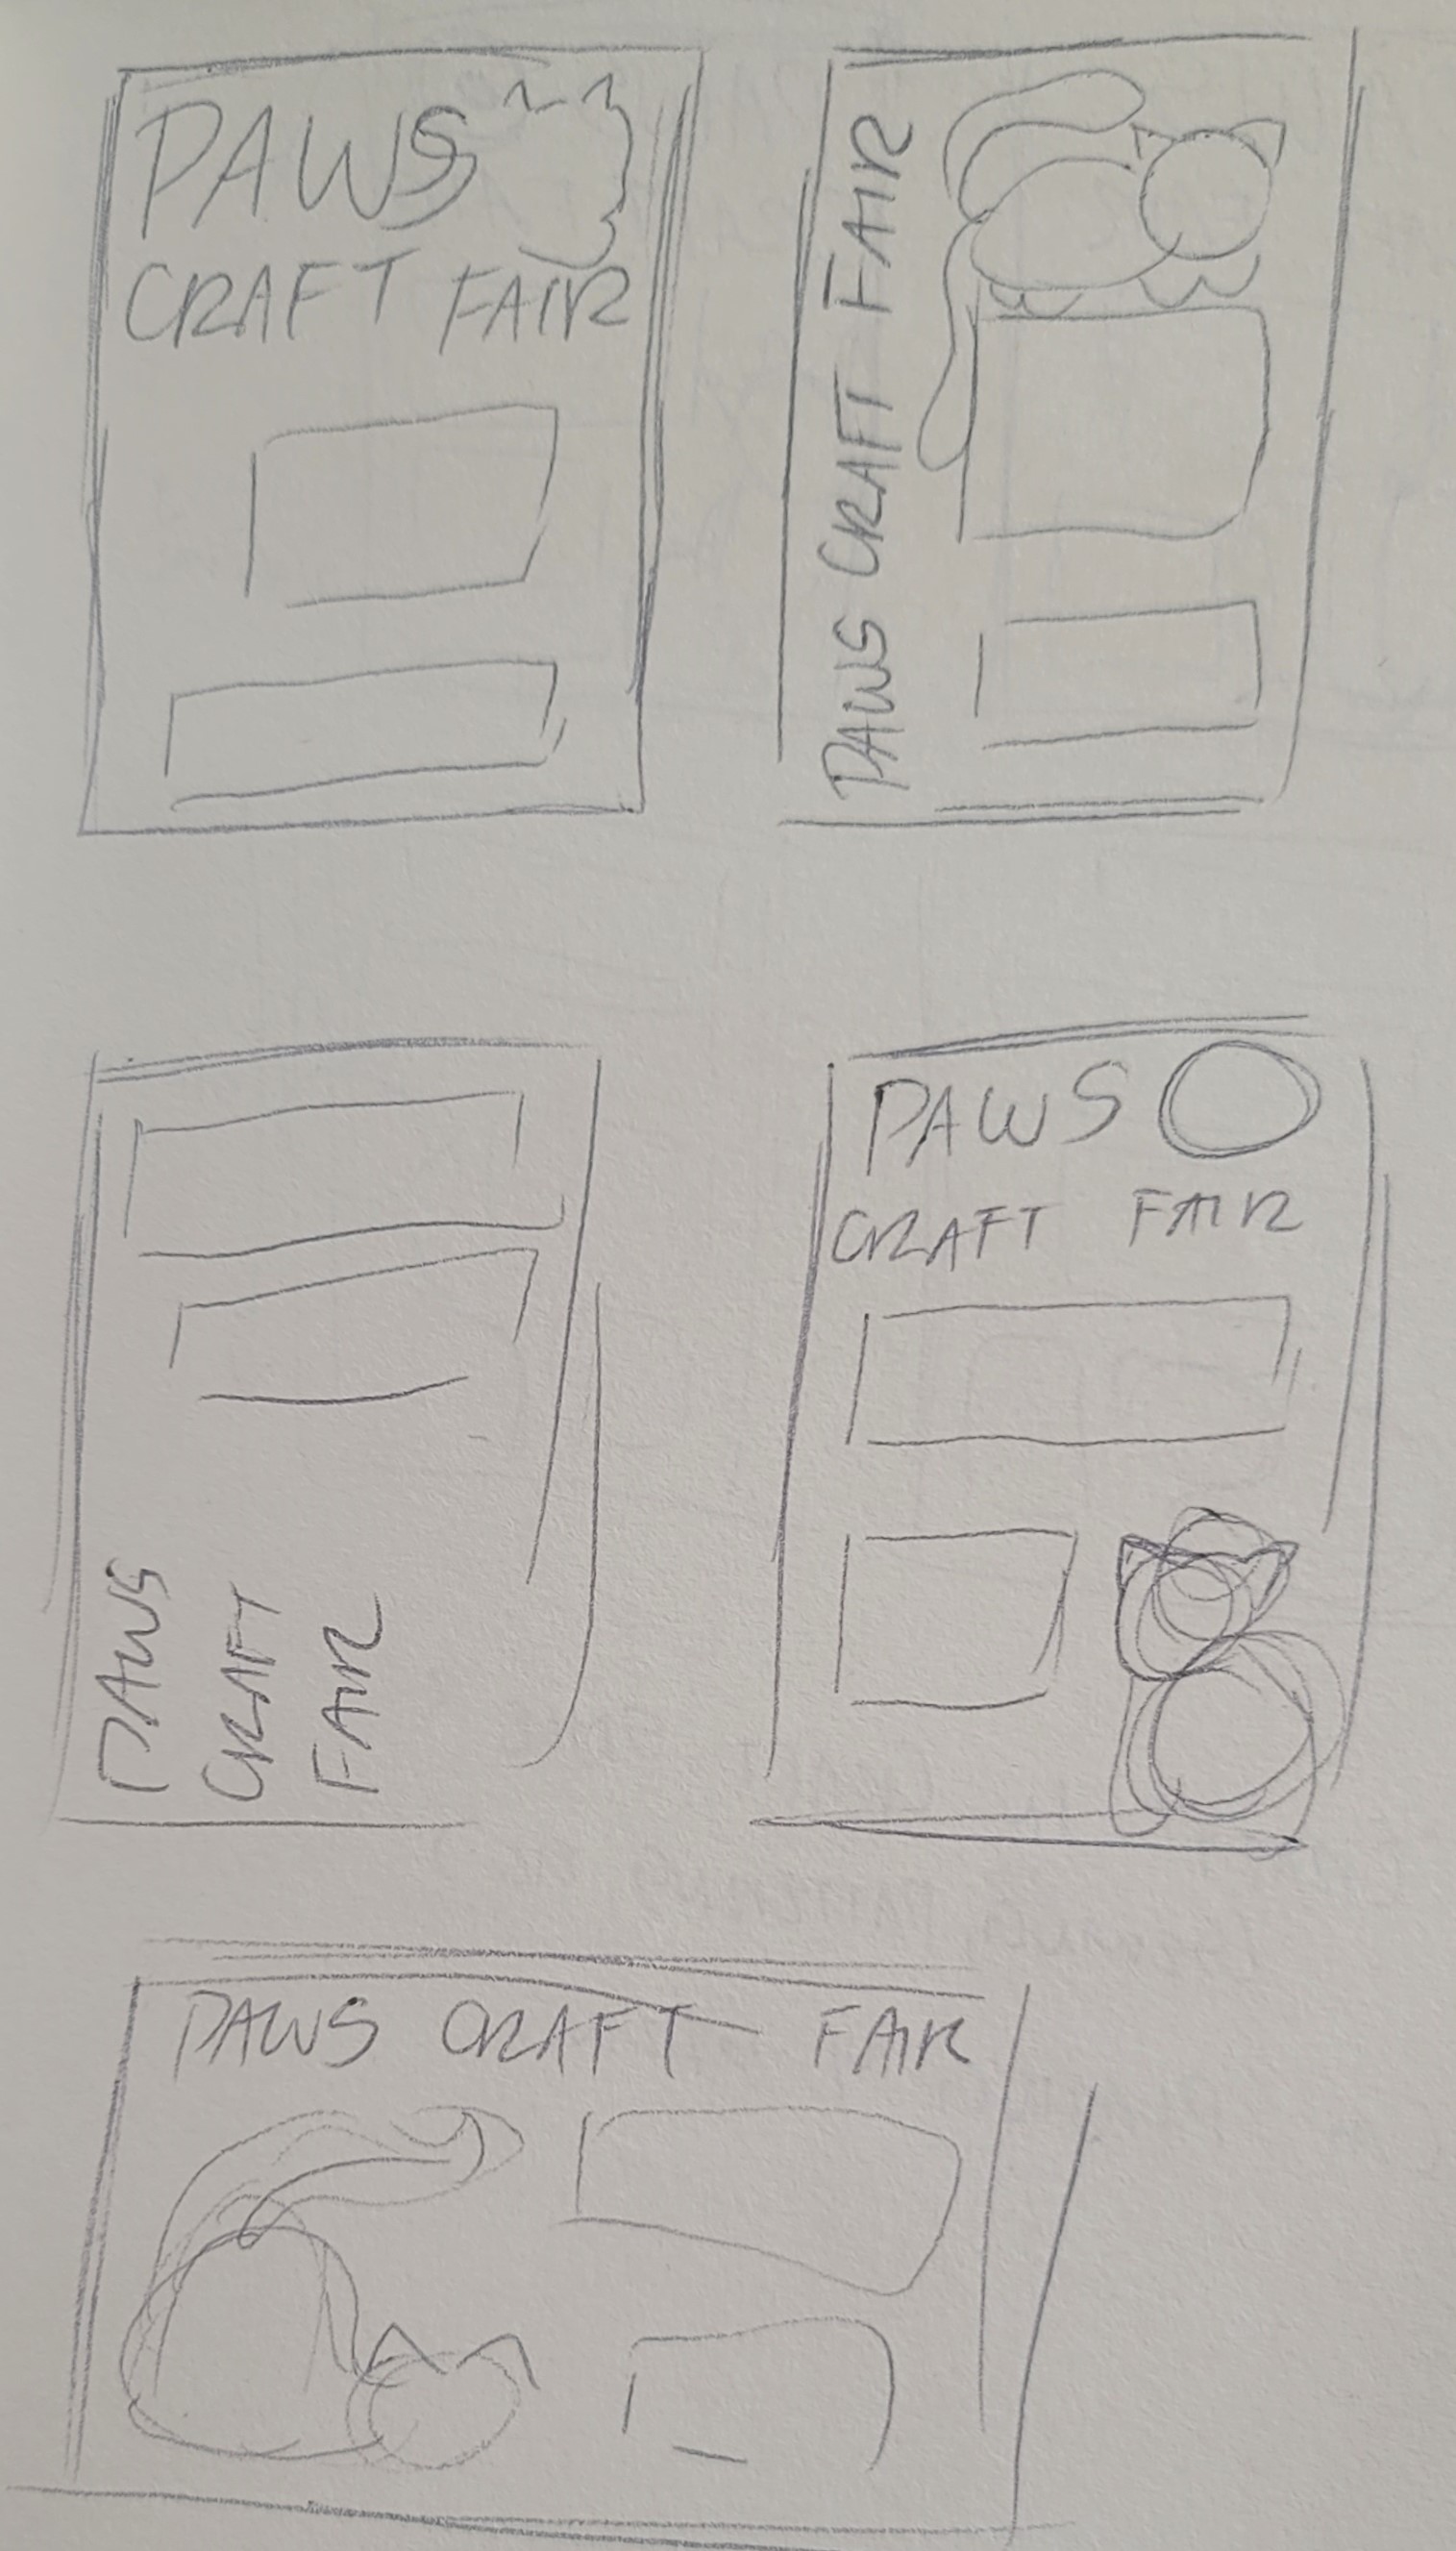 PAWS
CRAFT FAIR
PAWS CRAFT FAIR
PAWS
CRAFT
FAIR
PAWS
CRAFT FAIR
PAWS CRAFT FAIR